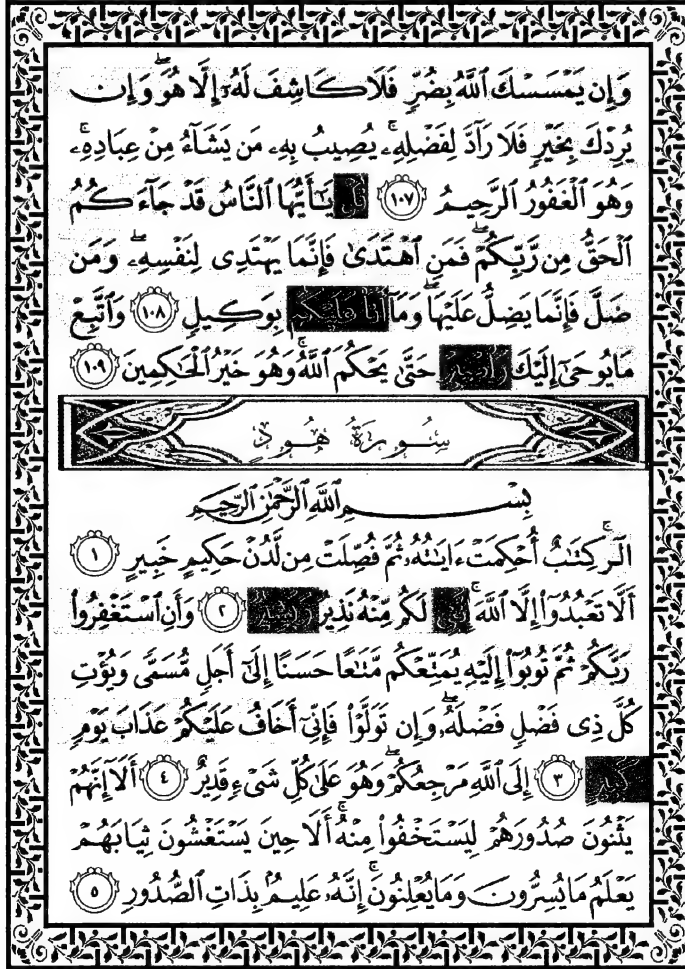 وَإِن يَمْسَسْكَ ٱللَّهُ بِضُرٍّ فَلَا كَاشِفَ لَهُۥٓ إِلَّا هُوَ ۖ وَإِن
يُرِدْكَ بِخَيْرٍ فَلَا رَآدَّ لِفَضْلِهِۦ ۚ يُصِيبُ بِهِۦ مَن يَشَآءُ مِنْ عِبَادِهِۦ ۚ
وَهُوَ ٱلْغَفُورُ ٱلرَّحِيمُ ١٠٧ قُلْ يَـٰٓأَيُّهَا ٱلنَّاسُ قَدْ جَآءَكُمُ
ٱلْحَقُّ مِن رَّبِّكُمْ ۖ فَمَنِ ٱهْتَدَىٰ فَإِنَّمَا يَهْتَدِى لِنَفْسِهِۦ ۖ وَمَن
ضَلَّ فَإِنَّمَا يَضِلُّ عَلَيْهَا ۖ وَمَآ أَنَا۠ عَلَيْكُم بِوَكِيلٍ ١٠٨ وَٱتَّبِعْ
مَا يُوحَىٰٓ إِلَيْكَ حَتَّىٰ يَحْكُمَ ٱللَّهُ ۚ وَهُوَ خَيْرُ ٱلْحَـٰكِمِينَ ١٠٩
سُورَةُ هُودٍ
بِسْمِ ٱللَّهِ ٱلرَّحْمَـٰنِ ٱلرَّحِيمِ
الٓر ۚ كِتَـٰبٌ أُحْكِمَتْ ءَايَـٰتُهُۥ ثُمَّ فُصِّلَتْ مِن لَّدُنْ حَكِيمٍ خَبِيرٍ ١
أَلَّا تَعْبُدُوٓا۟ إِلَّا ٱللَّهَ ۚ لَكُم مِّنْهُ نَذِيرٌ ٢ وَأَنِ ٱسْتَغْفِرُوا۟
رَبَّكُمْ ثُمَّ تُوبُوٓا۟ إِلَيْهِ يُمَتِّعْكُم مَّتَـٰعًا حَسَنًا إِلَىٰٓ أَجَلٍ مُّسَمًّى وَيُؤْتِ
كُلَّ ذِى فَضْلٍ فَضْلَهُۥ ۖ وَإِن تَوَلَّوْا۟ فَإِنِّىٓ أَخَافُ عَلَيْكُمْ عَذَابَ يَوْمٍ
٣ إِلَى ٱللَّهِ مَرْجِعُكُمْ ۖ وَهُوَ عَلَىٰ كُلِّ شَىْءٍ قَدِيرٌ ٤ أَلَآ إِنَّهُمْ
يَثْنُونَ صُدُورَهُمْ لِيَسْتَخْفُوا۟ مِنْهُ ۚ أَلَا حِينَ يَسْتَغْشُونَ ثِيَابَهُمْ
يَعْلَمُ مَا يُسِرُّونَ وَمَا يُعْلِنُونَ ۚ إِنَّهُۥ عَلِيمٌۢ بِذَاتِ ٱلصُّدُورِ ٥